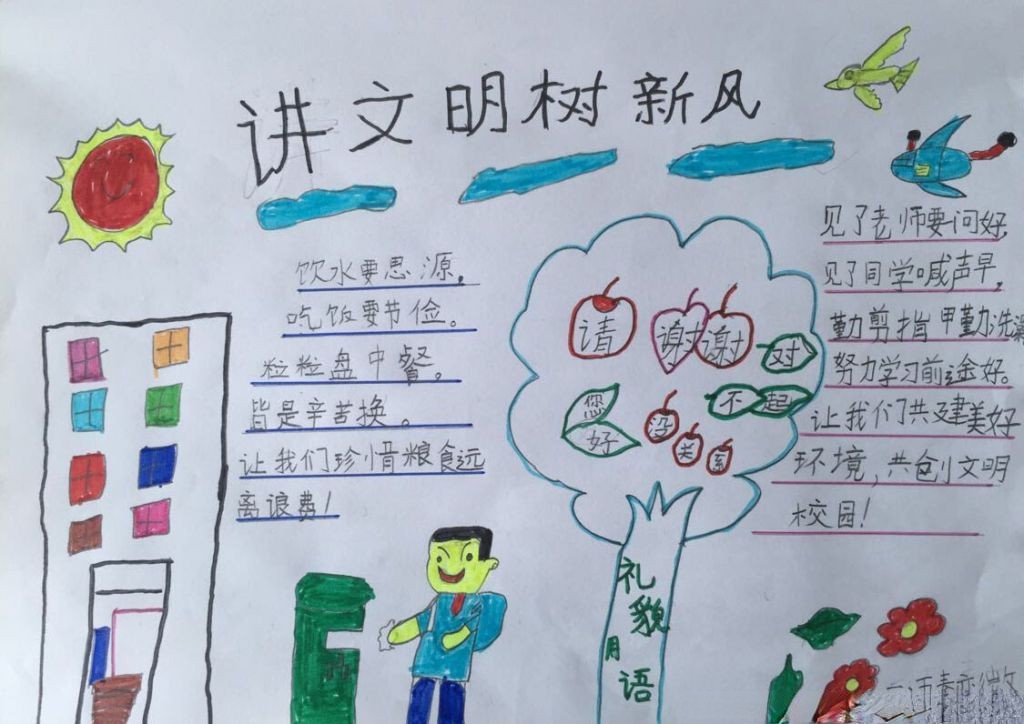 讲文明树新风
饮水要思源。
吃饭要节俭。
粒粒盘中餐。
皆是辛苦换。
让我们珍惜粮食远
离浪费!
请
谢谢
对
不起
您
好
没
关
系
礼
貌
月
语
见了老师要问好,
见了同学喊声早,
勤剪指甲勤洗澡
努力学习前途好。
让我们共建美好
环境,共创文明
校园!